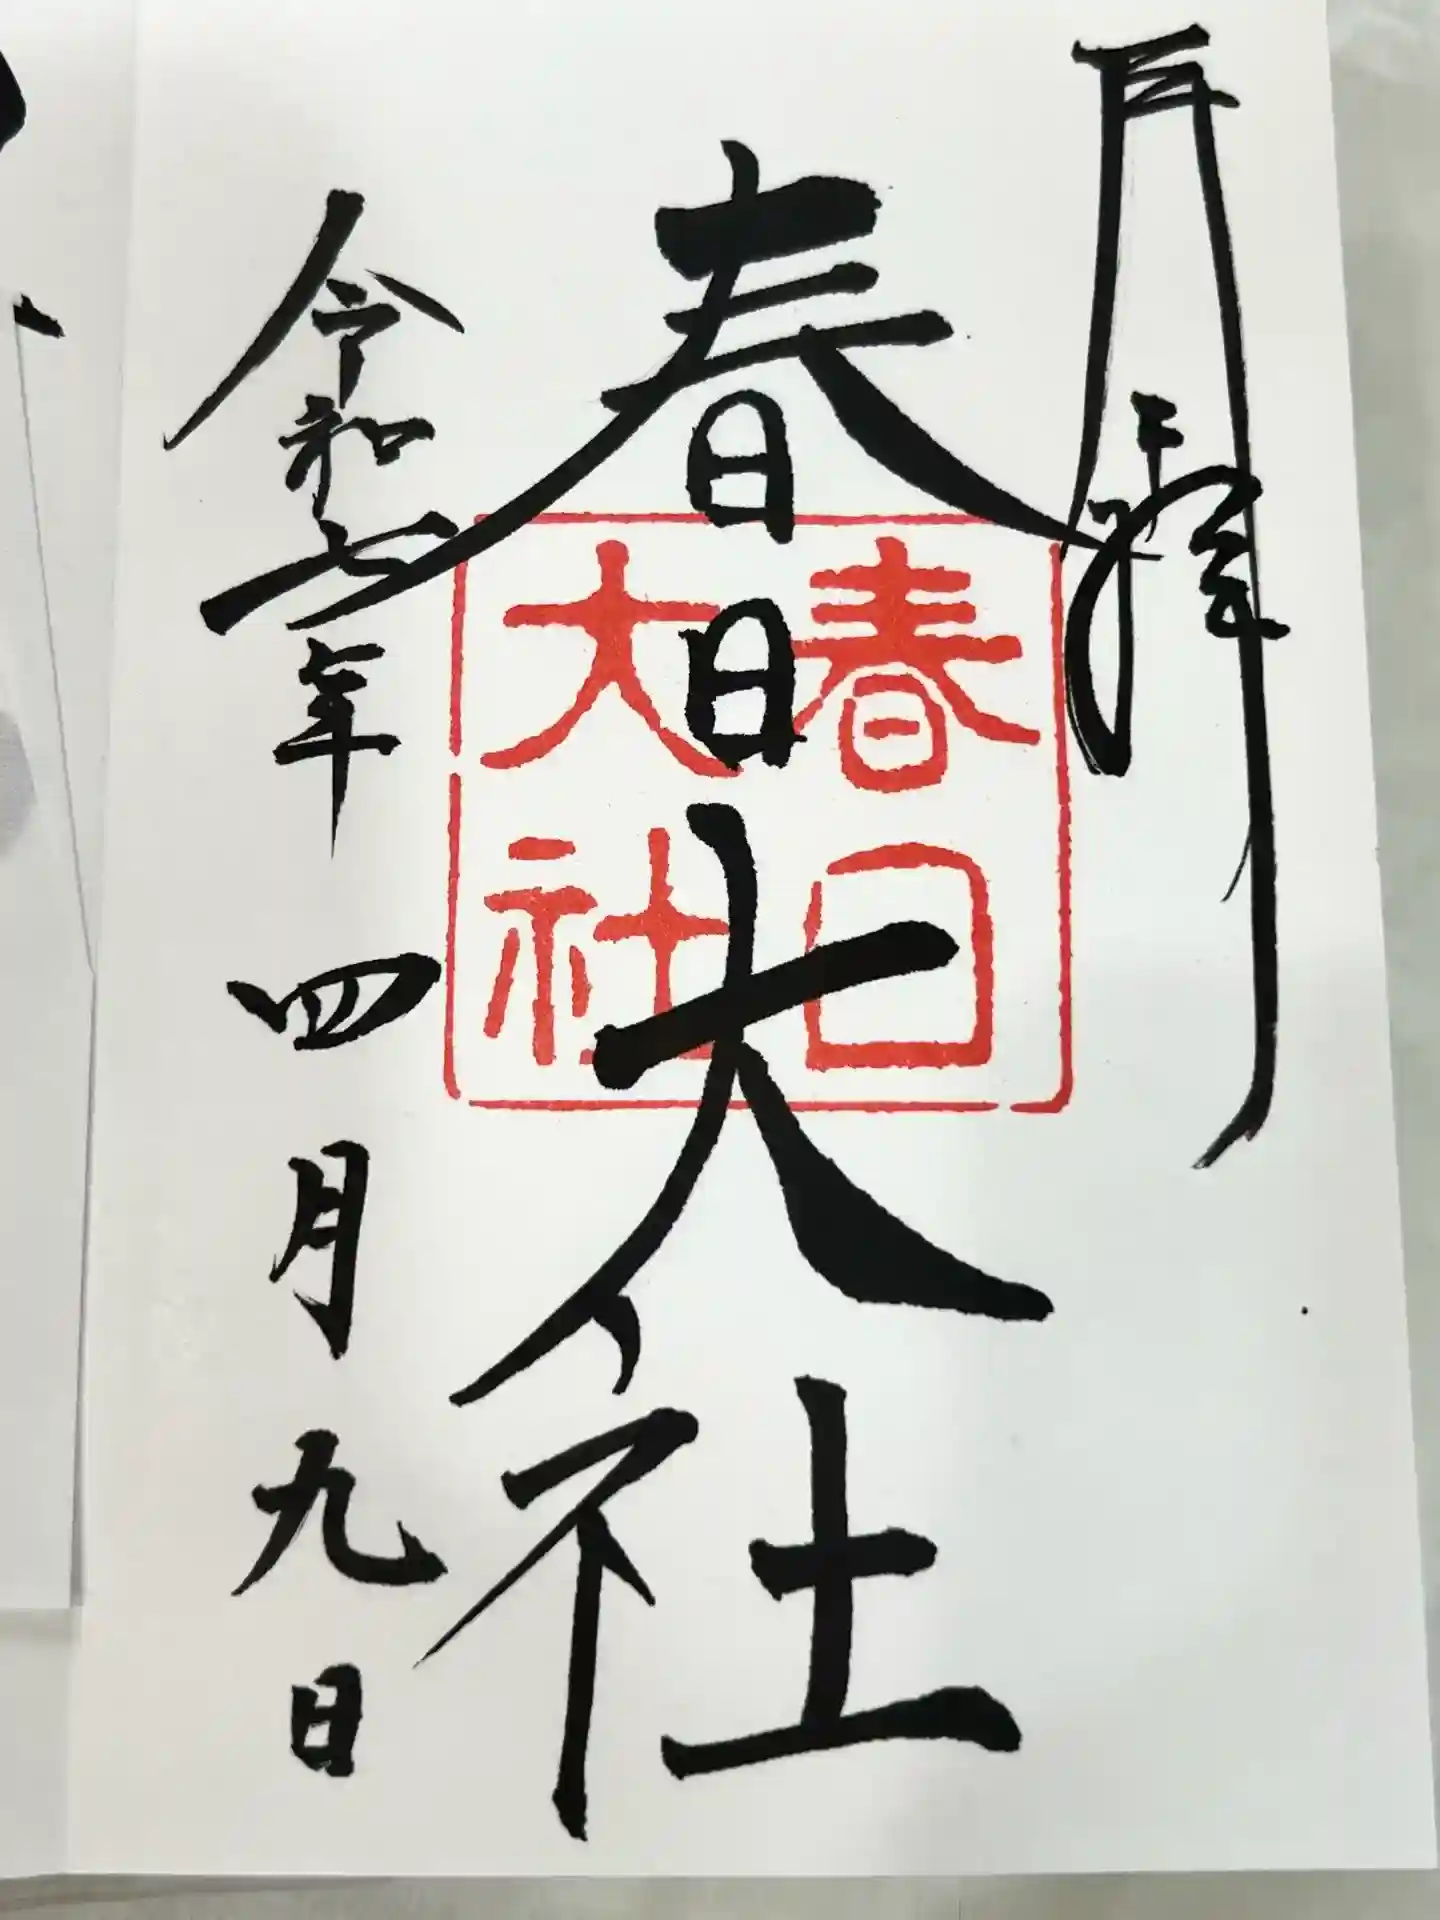 奉拝
春日大社
春日
大社
令和七年四月九日